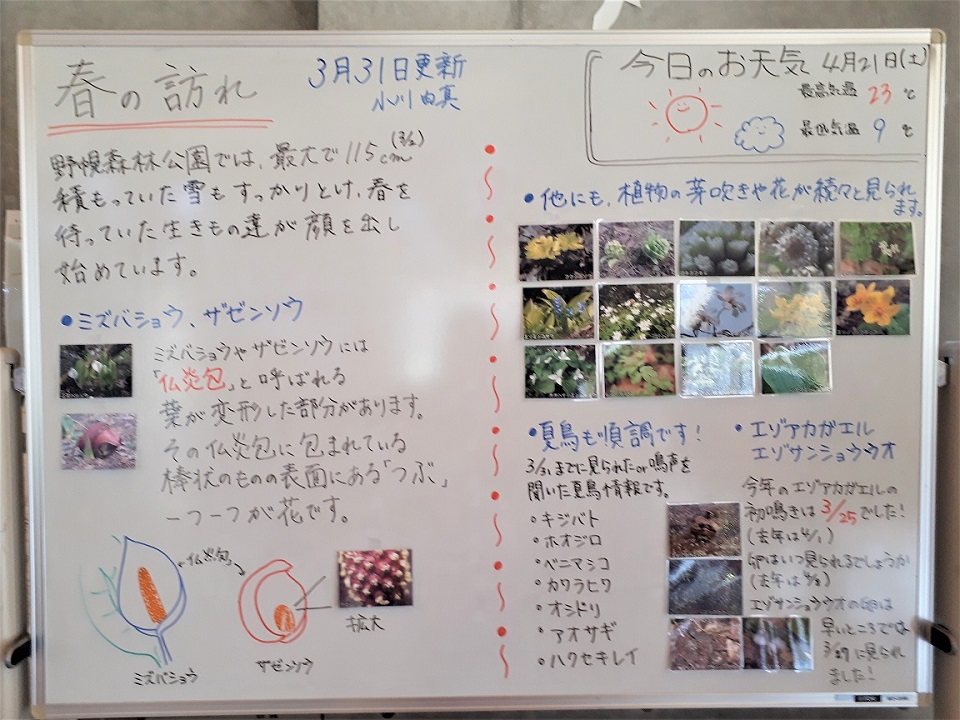 春の訪れ
3月31日更新
小川由真
今日のお天気 4月21日(土)
最高気温 23 ℃
最低気温 9 ℃
野幌森林公園では、最大で115cm(3/2)
積もっていた雪もすっかりとけ、春を
待っていた生きもの達が顔を出し
始めています。
•ミズバショウ、ザゼンソウ
ミズバショウやザゼンソウには
「仏炎包」と呼ばれる
葉が変形した部分があります。
その仏炎包に包まれている
棒状のものの表面にある「つぶ」
一つ一つが花です。
仏炎包
ミズバショウ
ザゼンソウ
拡大
•他にも、植物の芽吹きや花が続々と見られ
ます。
•夏鳥も順調です!
3/31までに見られたor鳴声を
聞いた夏鳥情報です。
◦キジバト
◦ホオジロ
◦ベニマシコ
◦カワラヒワ
◦オシドリ
◦アオサギ
◦ハクセキレイ
•エゾアカガエル
エゾサンショウウオ
今年のエゾアカガエルの
初鳴きは3/25でした!
(去年は4/1)
卵はいつ見られるでしょうか
(去年は4/8)
エゾサンショウウオの卵は
早いところでは
3/29に見られ
ました!